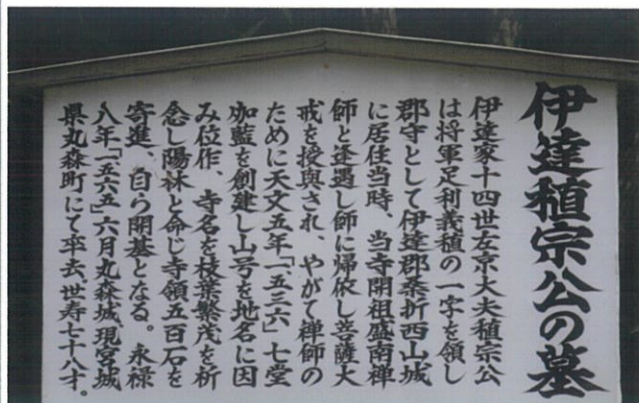 伊達稙宗公の墓
伊達家十四世左京大夫稙宗公
は将軍足利義稙の一字を領し
郡守として伊達郡桑折西山城
に居住当時、当寺開祖盛南禅
師と逢遇し師に帰依し菩薩大
戒を授與され、やがて禅師の
ために天文五年「一五三六」七堂
伽藍を創建し山号を地名に因
み位作、寺名を枝葉繁茂を祈
念し陽林と命じ寺領五百石を
寄進、自ら開基となる。永禄
八年「一五六五」六月丸森城、現宮城
県丸森町にて卒去、世寿七十八才。